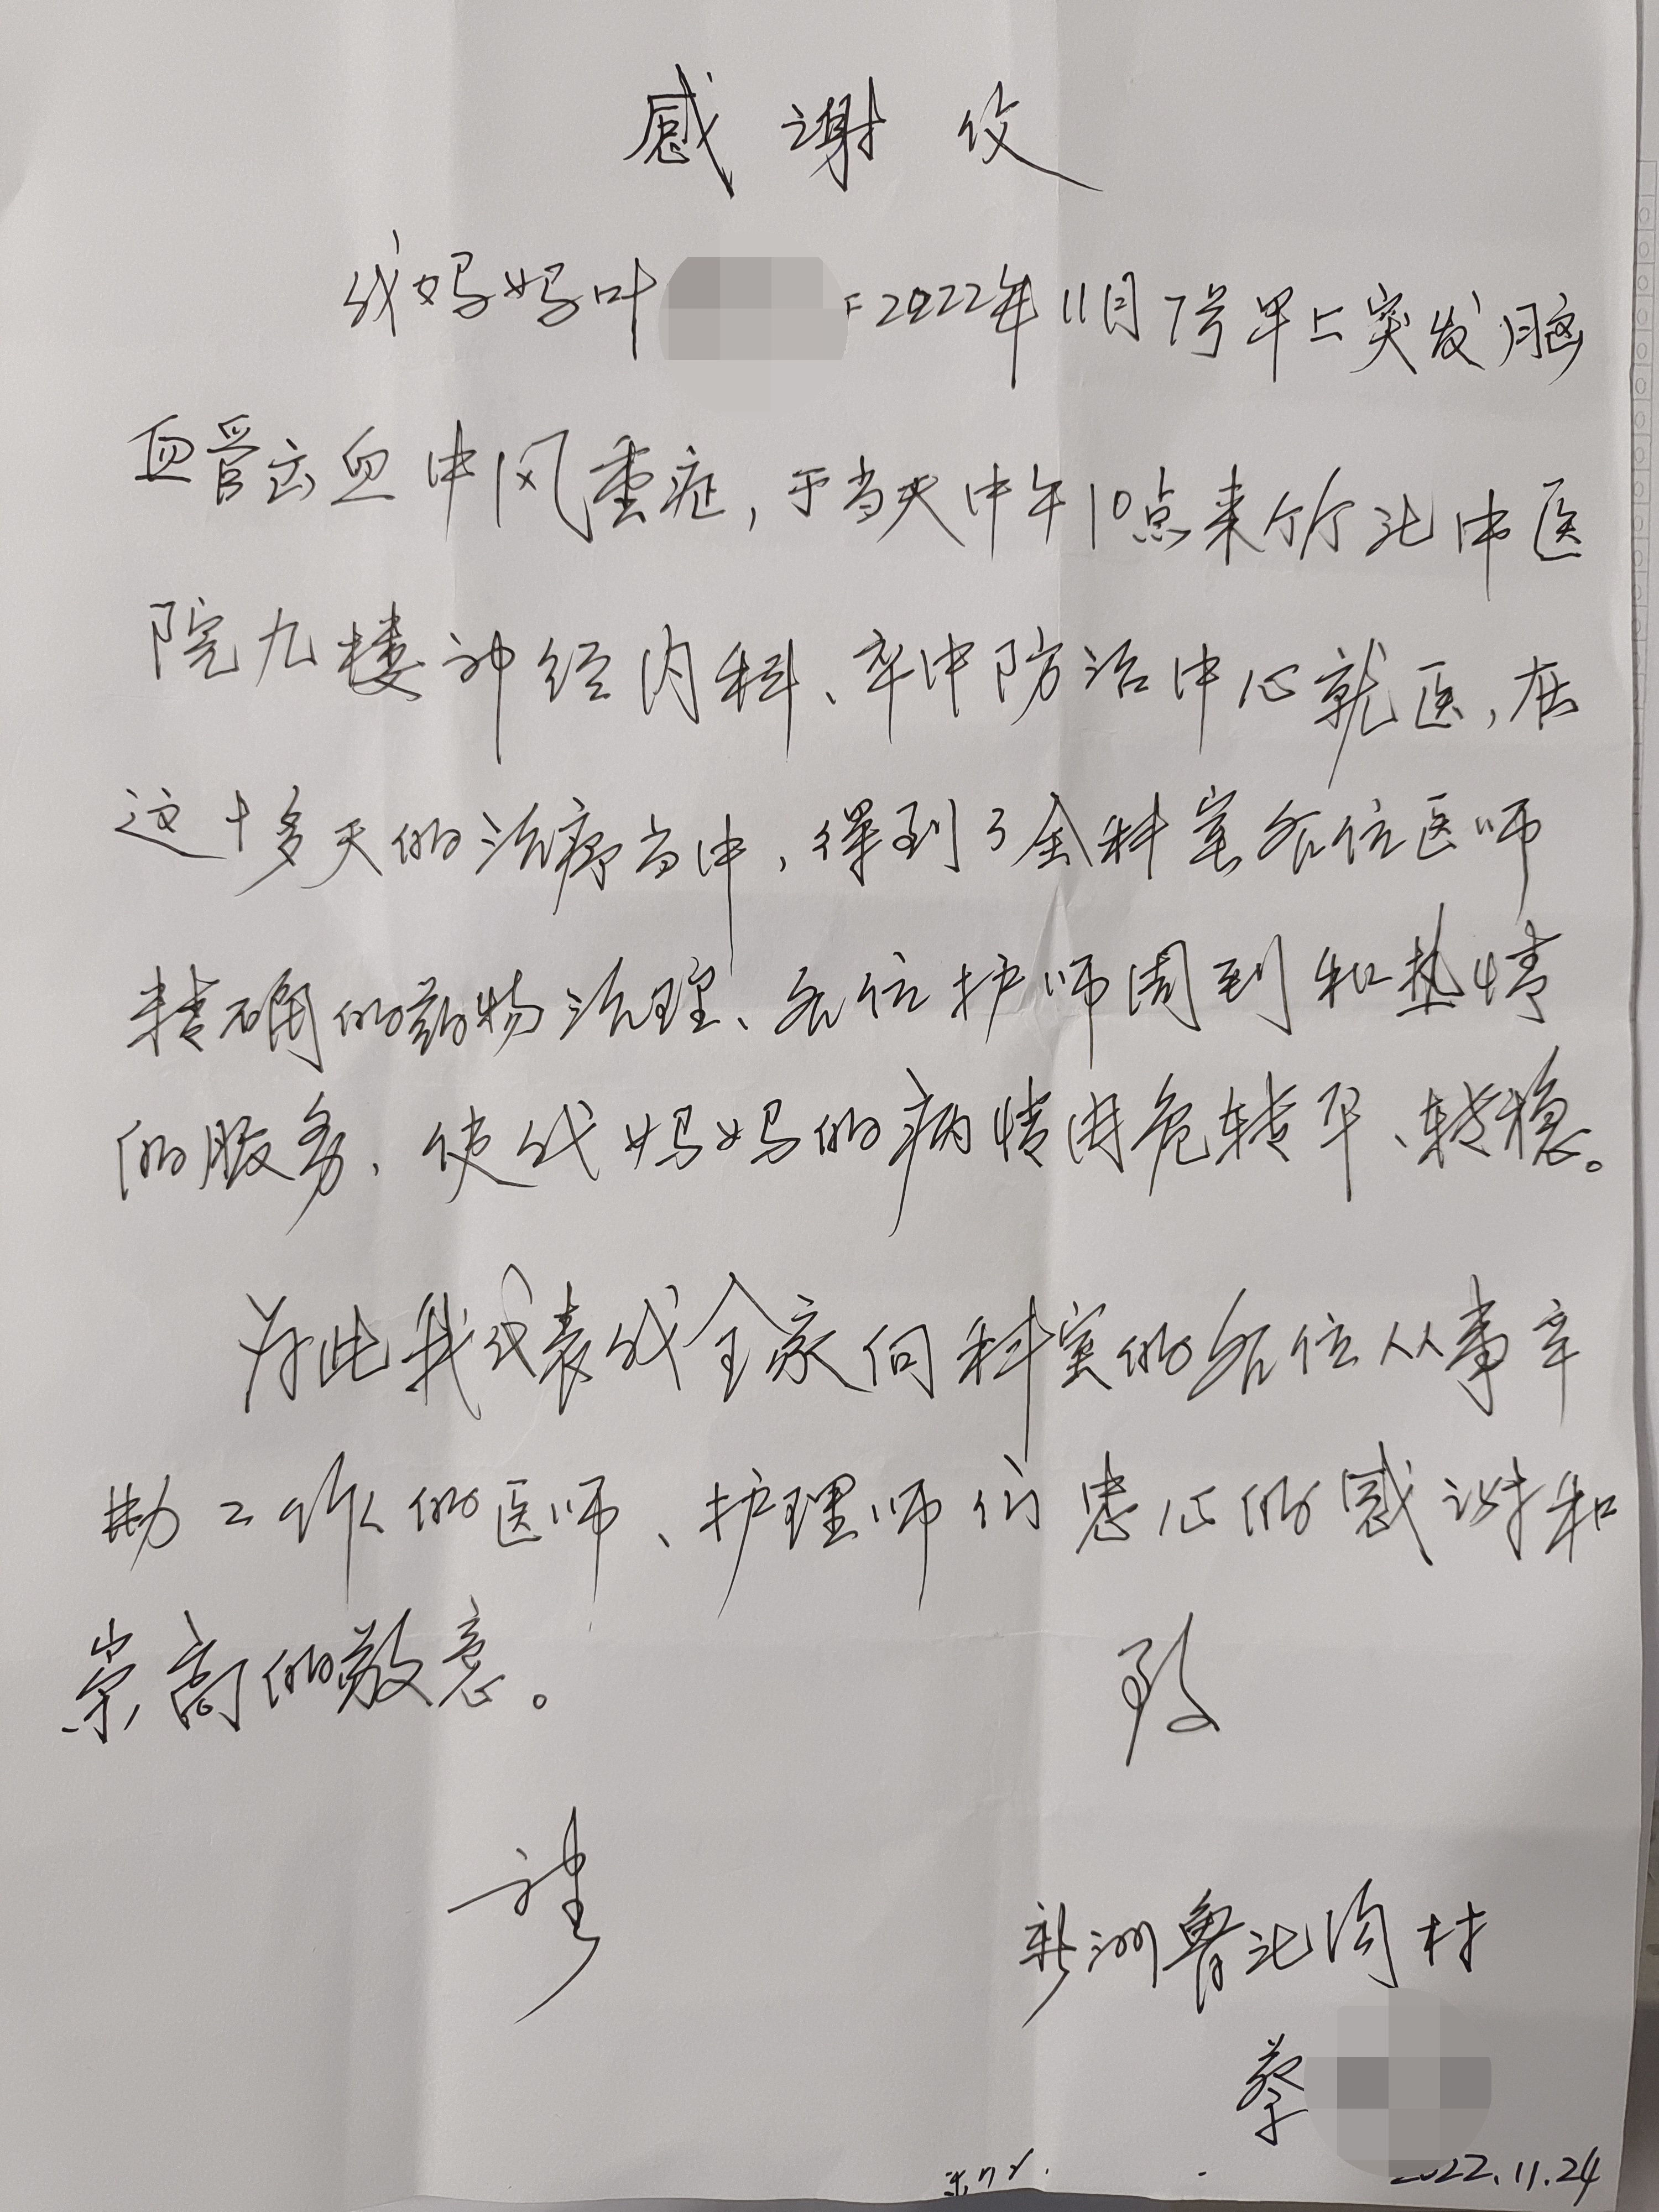 感谢仪
我妈妈叶 于2022年11月7号早上突发脑
血管出血中风重症，于当天中午10点来竹北中医
院九楼神经内科、卒中防治中心就医，在
这十多天的治疗当中，得到了全科室各位医师
精确的药物治理、各位护师周到和热情
的服务，使我妈妈的病情由危转平、转稳。
为此我代表我全家向科室的各位从事辛
勤工作的医师、护理师们忠心的感谢和
崇高的敬意。
致
礼
新洲鲁北沟村
蔡
2022.11.24